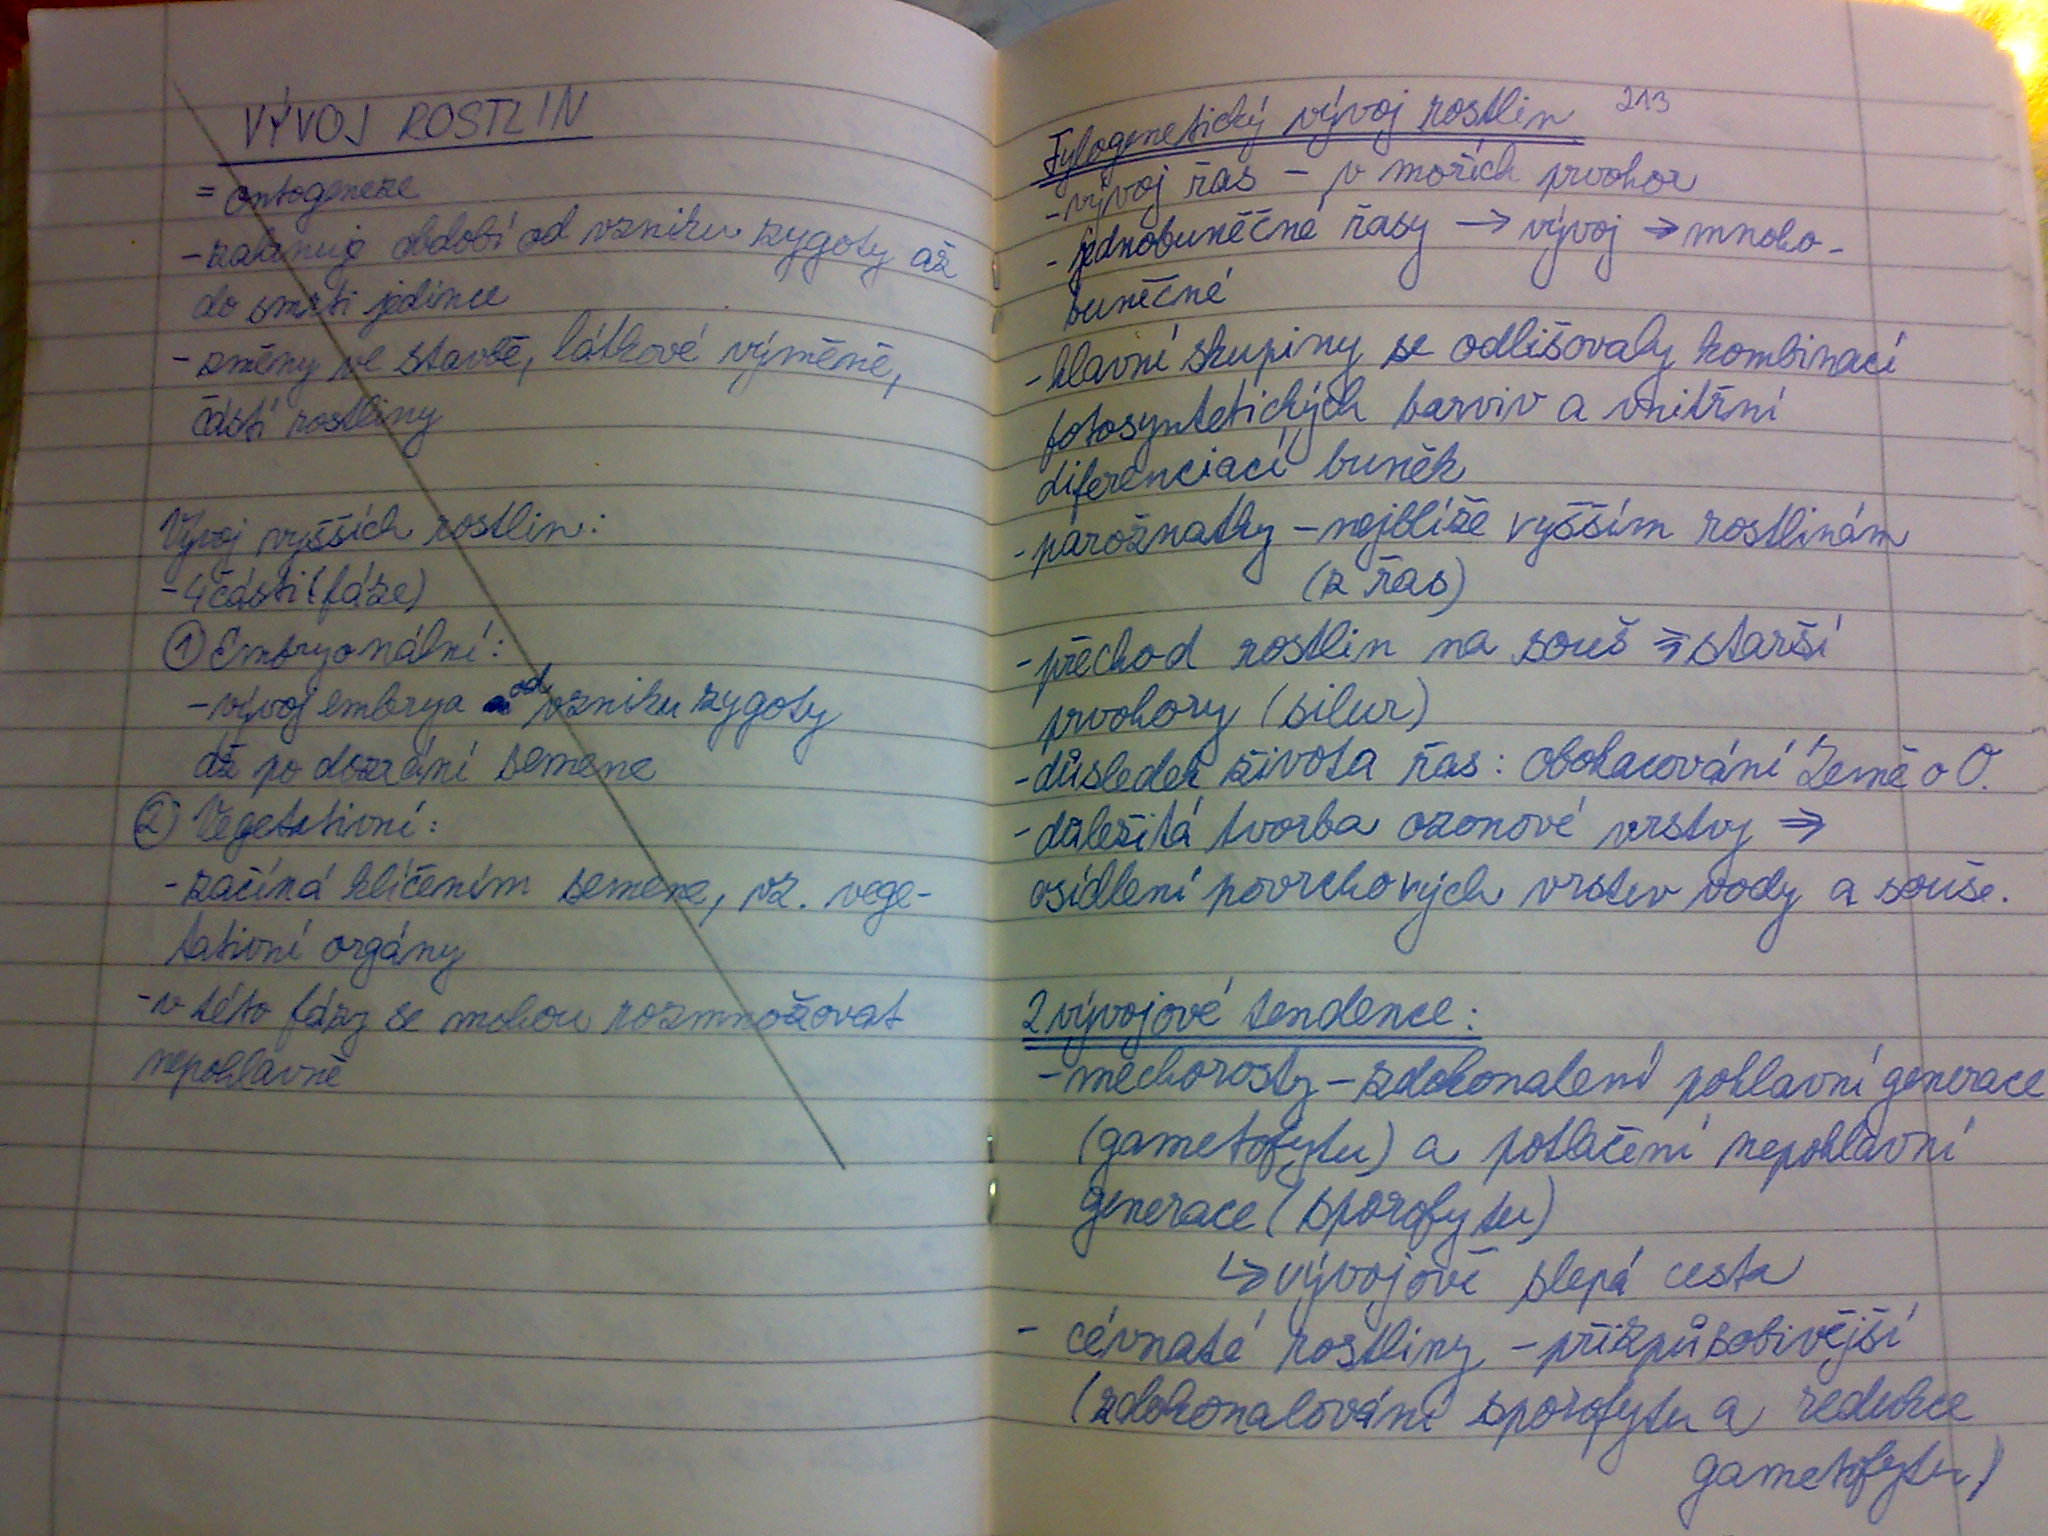 VÝVOJ ROSTLIN
= ontogeneze
- zahrnuje období od vzniku zygoty až
do smrti jedince
- změny ve stavbě, látkové výměně,
části rostliny
Vývoj vyšších rostlin:
- 4 části (fáze)
① Embryonální:
- vývoj embrya od vzniku zygoty
až po dozrání semene
② Vegetativní:
- začíná klíčením semene, vz. vege-
tativní orgány
- v této fázy se mohou rozmnožovat
nepohlavně
Fylogenetický vývoj rostlin 213
- vývoj řas - v mořích prvohor
- jednobuněčné řasy → vývoj → mnoho-
buněčné
- hlavní skupiny se odlišovaly kombinací
fotosyntetických barviv a vnitřní
diferenciací buněk
- parožnatky - nejblíže vyšším rostlinám
(z řas)
- přechod rostlin na souš ⇒ starší
prvohory (silur)
- důsledek života řas: obohacování Země o O.
- důležitá tvorba ozonové vrstvy ⇒
osídlení povrchových vrstev vody a souše.
2 vývojové tendence:
- mechorosty - zdokonalení pohlavní generace
(gametofytu) a potlačení nepohlavní
generace (sporofytu)
↳ vývojově slepá cesta
- cévnaté rostliny - přizpůsobivější
(zdokonalování sporofytu a redukce
gametofytu)